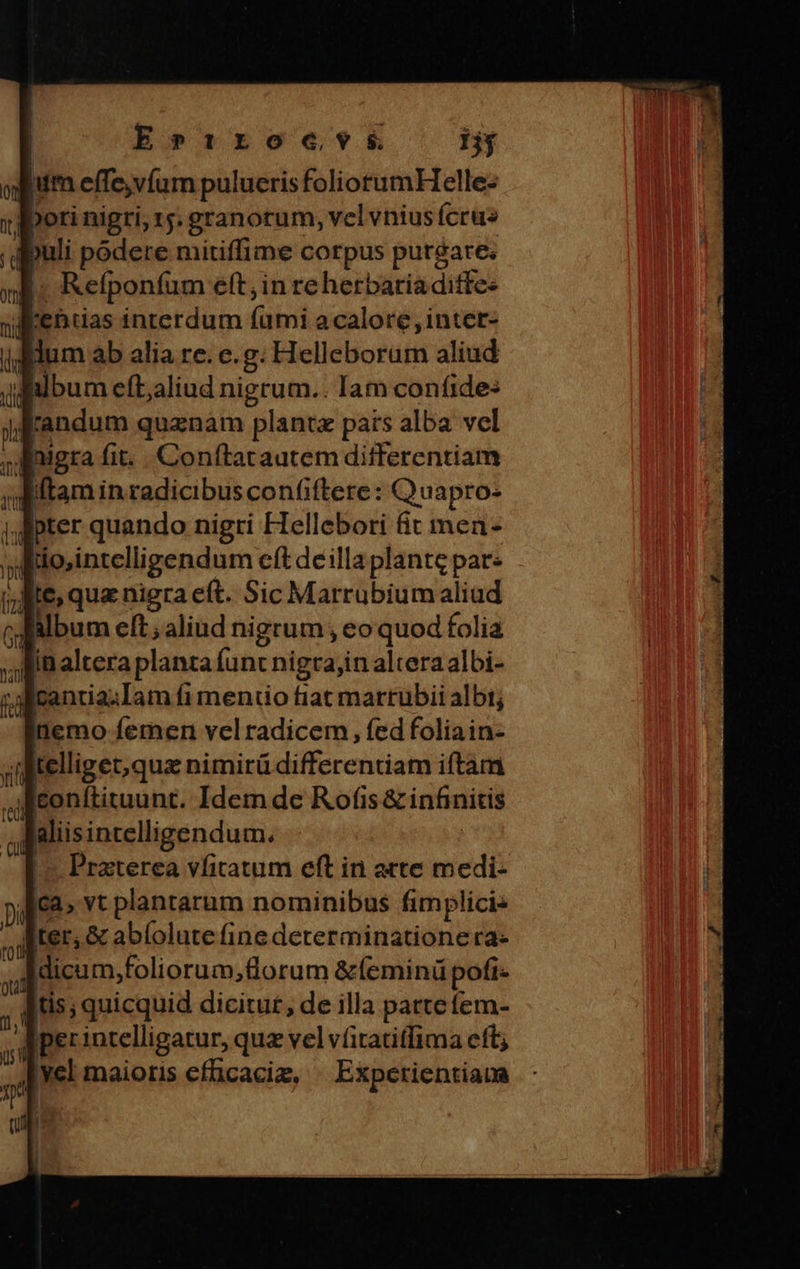 EPILOGVS 135
tum esse, vsum pulueris foliorum Helle-
bori nigri, 15. granorum, vel vnius scru-
puli pōdere mitissime corpus purgare.
Responsum est, in re herbaria diffe-
rentias interdum sumi a calore, inter-
dum ab alia re. e. g. Helleborum aliud
album est, aliud nigrum. Iam conside-
randum quænam plantæ pars alba vel
nigra sit. Constat autem differentiam
istam in radicibus consistere: Quapro-
pter quando nigri Hellebori fit men-
tio, intelligendum est de illa plantę par-
te, quæ nigra est. Sic Marrubium aliud
album est, aliud nigrum, eo quod folia
in altera planta sunt nigra, in altera albi-
cantia: Iam si mentio fiat marrubii albi,
nemo semen vel radicem, sed folia in-
telliget, quæ nimirū differentiam istam
constituunt. Idem de Rosis & infinitis
aliis intelligendum.
Præterea vsitatum est in arte medi-
ca, vt plantarum nominibus simplici-
ter, & absolute sine determinatione ra-
dicum, foliorum, florum & seminū posi-
tis, quicquid dicitur, de illa parte sem-
per intelligatur, quæ vel vsitatissima est,
vel maioris efficaciæ, Experientiam